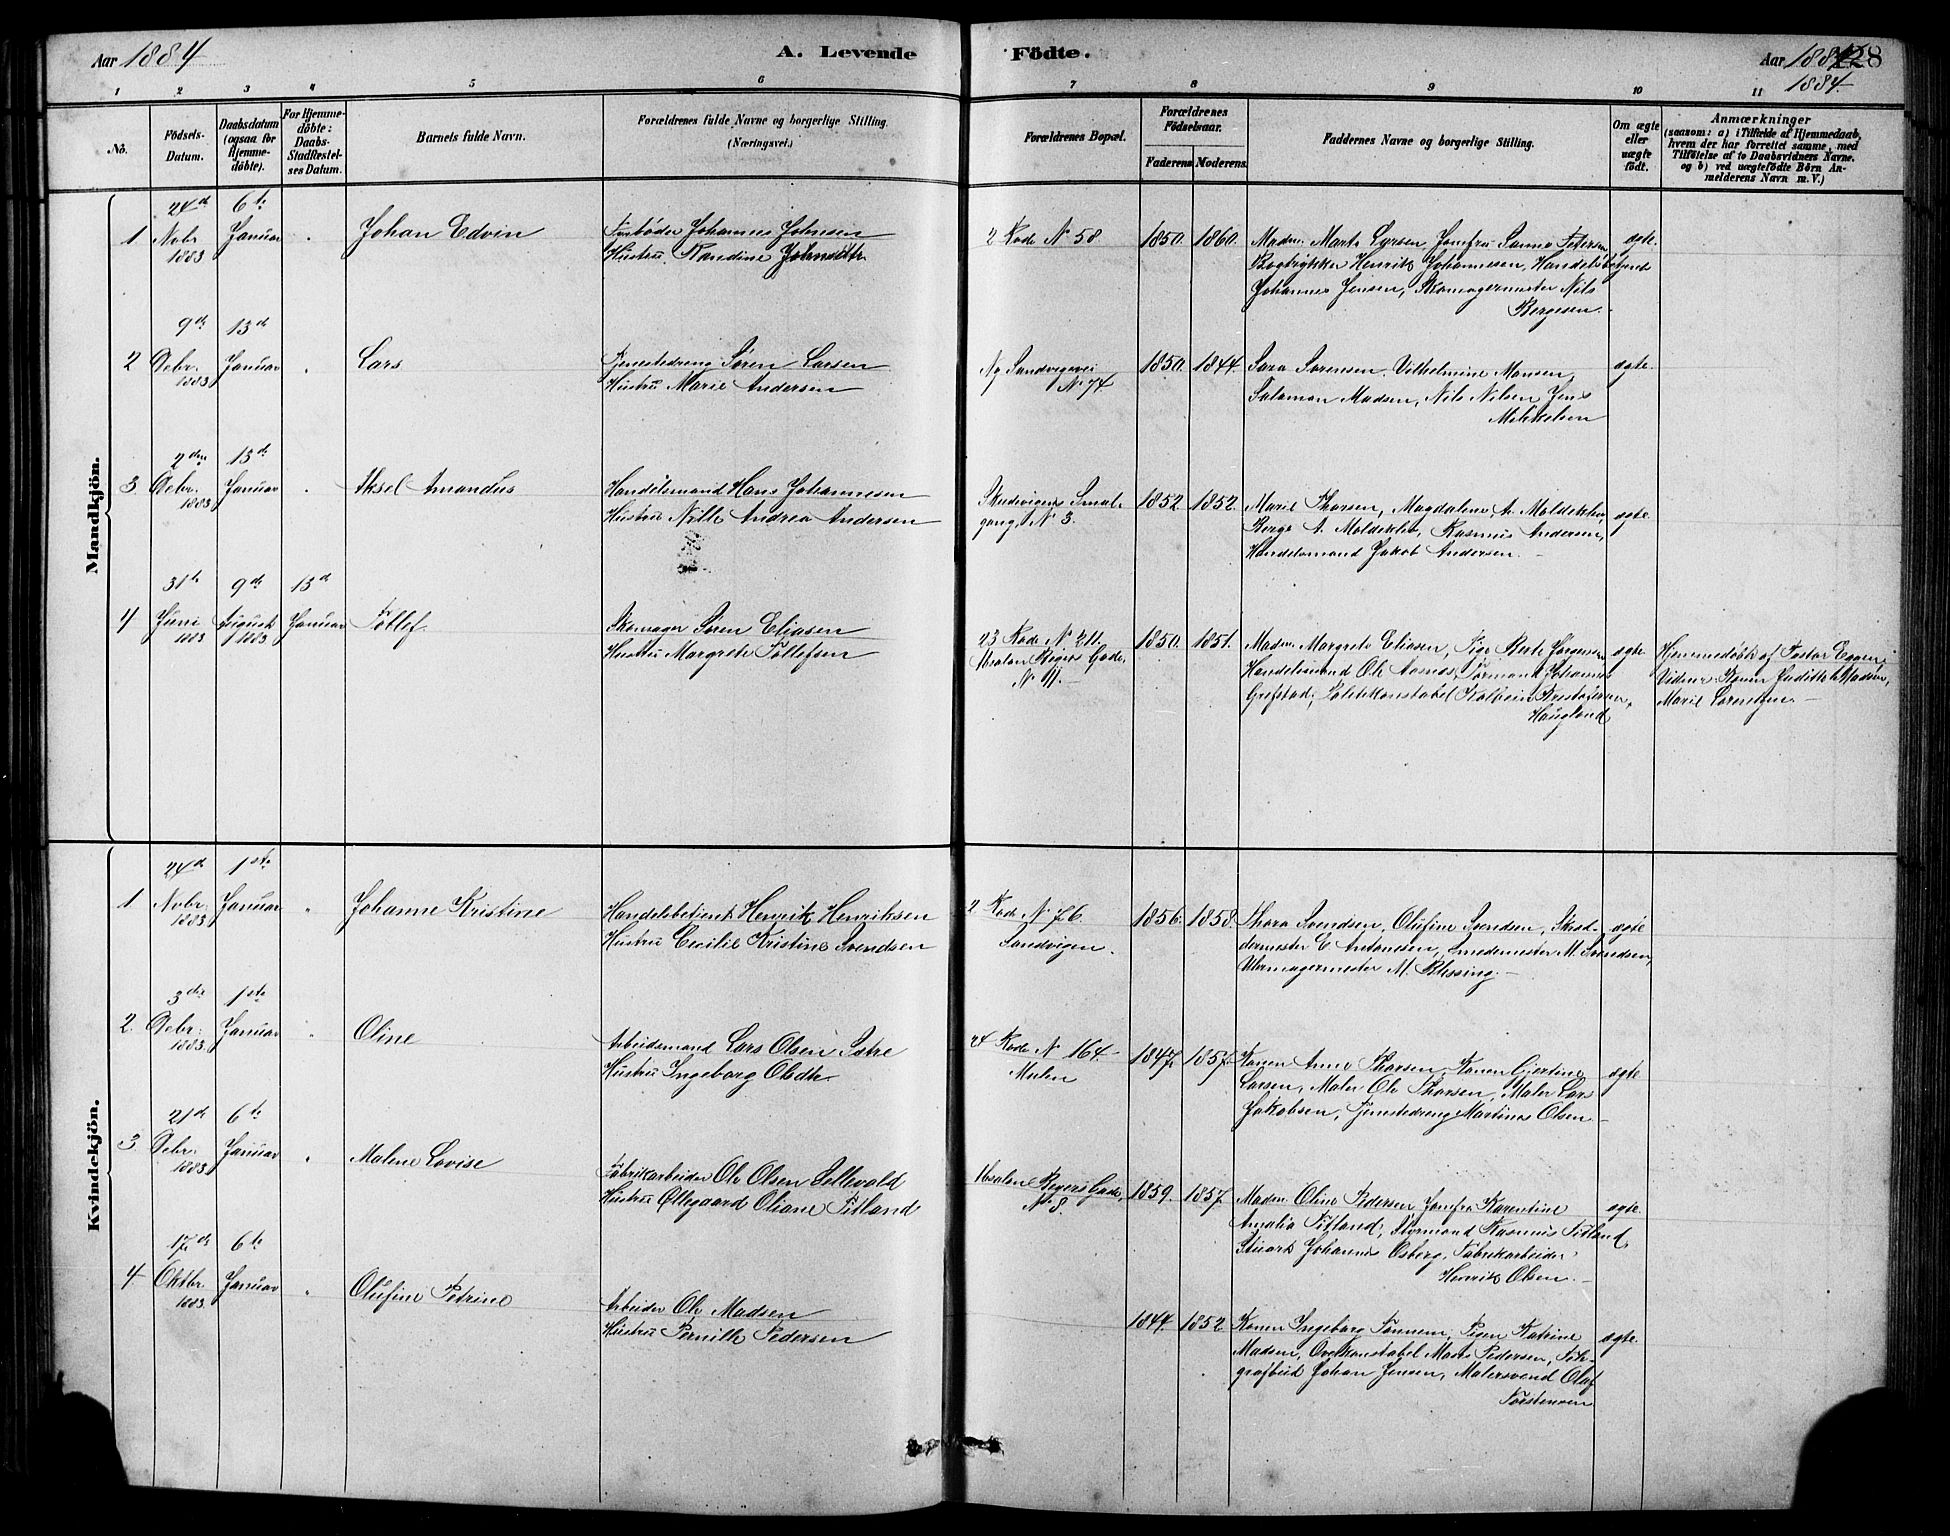 Aar 1884
A. Levende Födte.
Aar 1884 128
1884.
1 2 3 4 5 6 7 8 9 10 11
No.
Födsels-Datum.
Daabsdatum (ogsaa for Hjemme-döbte).
For Hjemme-döbte: Daabs-Stadfæstel-ses Datum.
Barnets fulde Navn.
Forældrenes fulde Navne og borgerlige Stilling. (Næringsvei.)
Forældrenes Bopæl.
Forældrenes Födselsaar.
Faderens. Moderens.
Faddernes Navne og borgerlige Stilling.
Om ægte eller uægte födt.
Anmærkninger
(saasom: a) i Tilfælde af Hjemmedaab, hvem der har forrettet samme, med Tilföielse af to Daabsvidners Navne, og b) ved uægtefödte Börn An-melderens Navn m. V.)
Mandkjön.
24d 6te
1 Nobr. 1883 Januar " Johan Edvin
Johannes Johnsen
Hustru Nandine Johnsdttr
2 Rode No 58 1850. 1860.
Madm. Marta Larsen, Jomfru Sanna Petersen
Bogtrykker Henrik Johannesen, Handelsbetjent
Johannes Jensen, Skomagermester Nils
Bergesen.
ægte.
9de 13d
2 Debr. 1883 Januar " Lars
Tjenestedreng Søren Larsen
Hustru Marie Andersen
Ny Sandvigsvei
No 74
1850. 1844.
Sara Sørensen, Vilhelmine Monsen,
Salamon Madsen, Nils Nilsen Jens
Mikkelsen
ægte.
2den 13de
3 Debr. 1883 Januar " Aksel Amandus
Handelsmand Hans Johannesen
Hustru Nille Andrea Andersen
Skudevigens Smal-
gang, No 3.
1852 1852.
Marie Thorsen, Magdalene A. Moldeklev,
Berge A. Moldeklev, Rasmus Andersen,
Handelsmand Jakob Andersen.
ægte
31te 9de 13d
4 Juni 1883 August 1883 Januar Tollef.
Skomager Søren Eliasen
Hustru Margrete Tollefsen
23 Rode No 211.
Absalon Beyers Gade,
No 11.
1850. 1851.
Madm. Margrete Eliasen, Pige Berte Jørgensen
Handelsmand Ole Aasnes, Formand Johannes
Grefstad, Politikonstabel Kolbein Kristofersen,
Haugland
ægte
Hjemmedøbt af Pastor Eggen
Vidner Konen Juditte Madsen,
Marie Lorentzen.
Kvindekjön.
24d 1ste
1 Nobr. 1883 Januar " Johanne Kristine
Handelsbetjent Henrik Henriksen
Hustru Cecilie Kristine Svendsen
2 Rode No 76.
Sandvigen.
1856. 1858.
Thora Svendsen, Olufine Svendsen, Skræd-
dermester E Antonesen, Smedemester M. Svendsen,
Uhrmagermester M. Blessing.
ægte
3die 1ste
2 Debr. 1883. Januar " Oline
Arbeidsmand Lars Olsen Sætre
Hustru Ingeborg Olsdtr.
24 Rode No 164
Mulen
1847. 1857.
Konen Anna Thorsen, Konen Gjertine
Larsen, Maler Ole Thorsen, Maler Lars
Jakobsen, Tjenestedreng Martines Olsen
ægte
21de 6te
3 Debr. 1883. Januar " Malene Lovise
Fabrikarbeider Ole Olsen Sellevold
Hustru Ollegaard Oliane Titland
Absalon Beyers Gade,
No 8.
1859. 1857.
Madm. Oline Pedersen, Jomfru Karentine
Amalia Titland, Styrmand Rasmus Titland
Stuart Johannes Osberg, Fabrikarbeider
Henrik Olsen.
ægte.
17de 6te
4 Oktbr. 1883. Januar " Olufine Petrine
Arbeider Ole Madsen
Hustru Pernille Pedersen
1844. 1852.
Konen Ingeborg Tønnesen, Pigen Katrine
Madsen, Overkonstabel Mons Pedersen, Tele-
grafbud Johan Jensen, Malersvend Olaf
Torstensen
ægte.